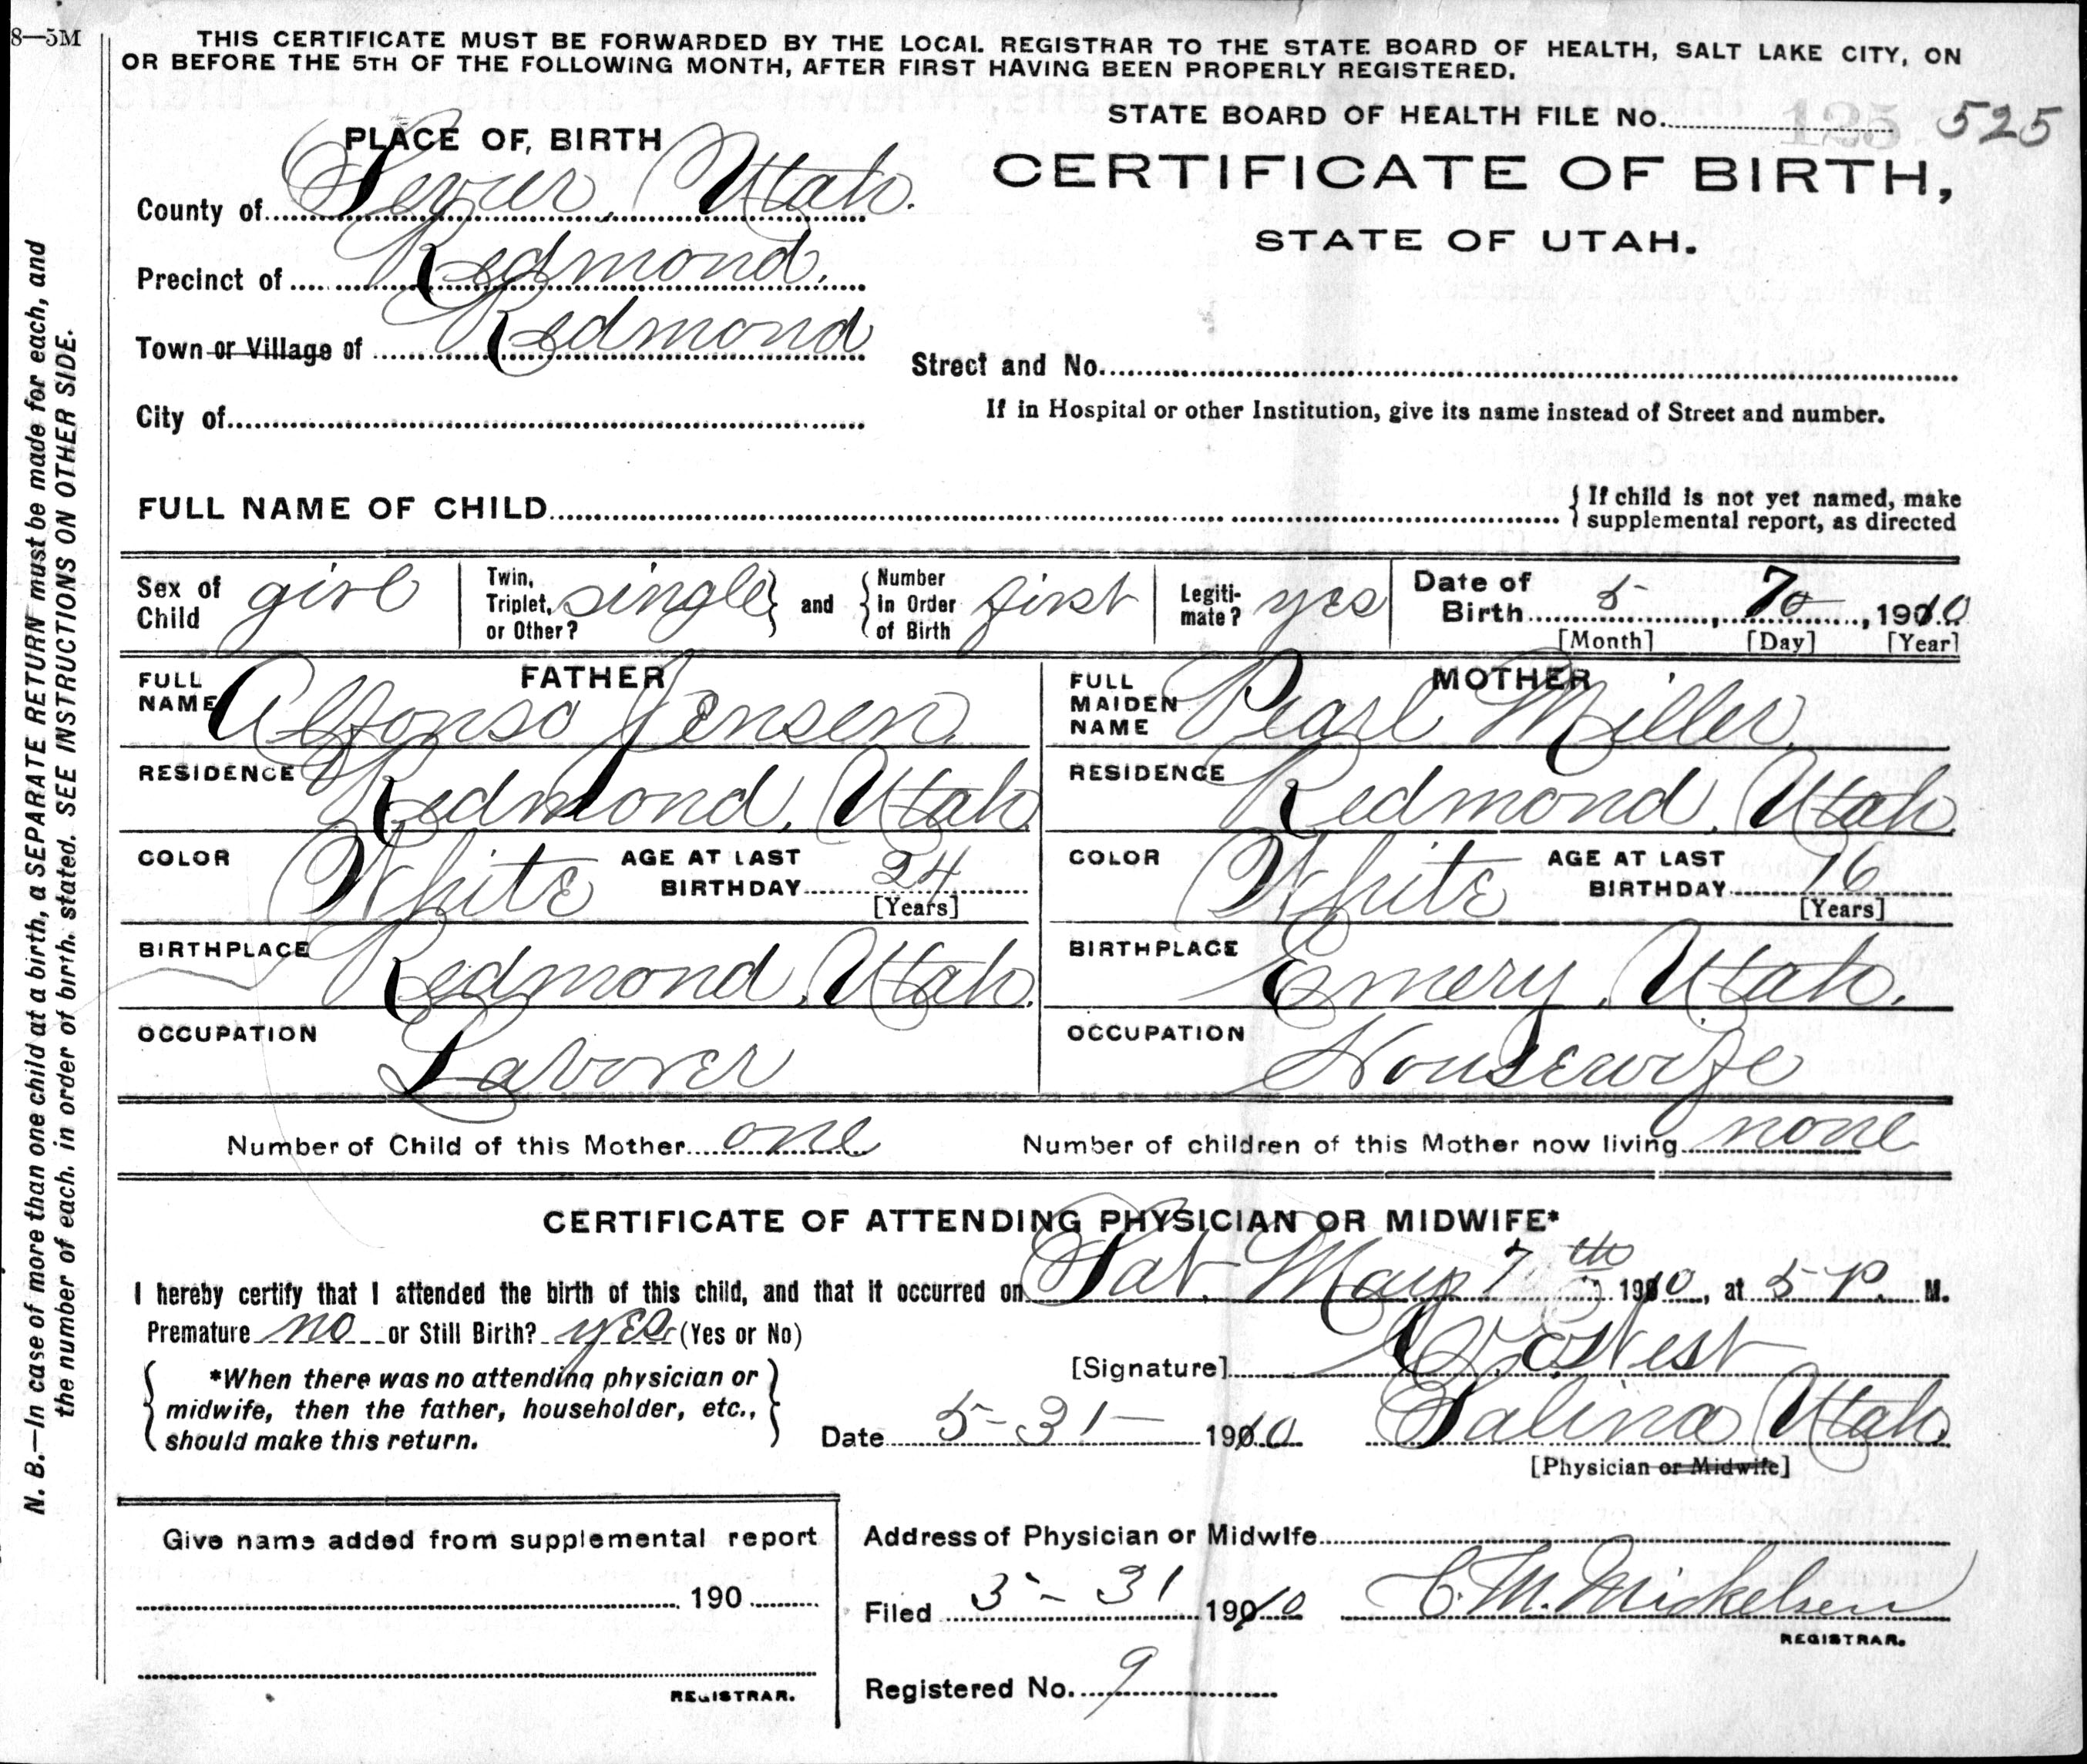 8—5M
THIS CERTIFICATE MUST BE FORWARDED BY THE LOCAL REGISTRAR TO THE STATE BOARD OF HEALTH, SALT LAKE CITY, ON
OR BEFORE THE 5TH OF THE FOLLOWING MONTH, AFTER FIRST HAVING BEEN PROPERLY REGISTERED.
STATE BOARD OF HEALTH FILE No. 125 525
PLACE OF BIRTH
CERTIFICATE OF BIRTH,
STATE OF UTAH.
County of Sevier, Utah.
Precinct of Redmond.
Town or Village of Redmond
Street and No.
City of
If in Hospital or other Institution, give its name instead of Street and number.
FULL NAME OF CHILD
{ If child is not yet named, make
supplemental report, as directed
Sex of Child girl
Twin, Triplet, or Other? single } and { Number in Order of Birth first
Legitimate? yes
Date of Birth 5, 7, 1910
[Month] [Day] [Year]
FATHER
FULL NAME Alfonso Jensen.
RESIDENCE Redmond, Utah
COLOR White AGE AT LAST BIRTHDAY 24
[Years]
BIRTHPLACE Redmond, Utah.
OCCUPATION Laborer
MOTHER
FULL MAIDEN NAME Pearl Miller.
RESIDENCE Redmond, Utah
COLOR White AGE AT LAST BIRTHDAY 16
[Years]
BIRTHPLACE Emery, Utah.
OCCUPATION Housewife
Number of Child of this Mother one
Number of children of this Mother now living none
CERTIFICATE OF ATTENDING PHYSICIAN OR MIDWIFE*
I hereby certify that I attended the birth of this child, and that it occurred on Sat. May 7th 1910, at 5 P. M.
Premature no or Still Birth? yes (Yes or No)
[Signature] West
{ *When there was no attending physician or
midwife, then the father, householder, etc.,
should make this return. }
Date 5-31- 1910
Salina Utah.
[Physician or Midwife]
Give name added from supplemental report
190
REGISTRAR.
Address of Physician or Midwife
Filed 5-31 1910 C. M. Mickelsen
REGISTRAR.
Registered No. 9
N. B.—In case of more than one child at a birth, a SEPARATE RETURN must be made for each, and
the number of each, in order of birth, stated. SEE INSTRUCTIONS ON OTHER SIDE.